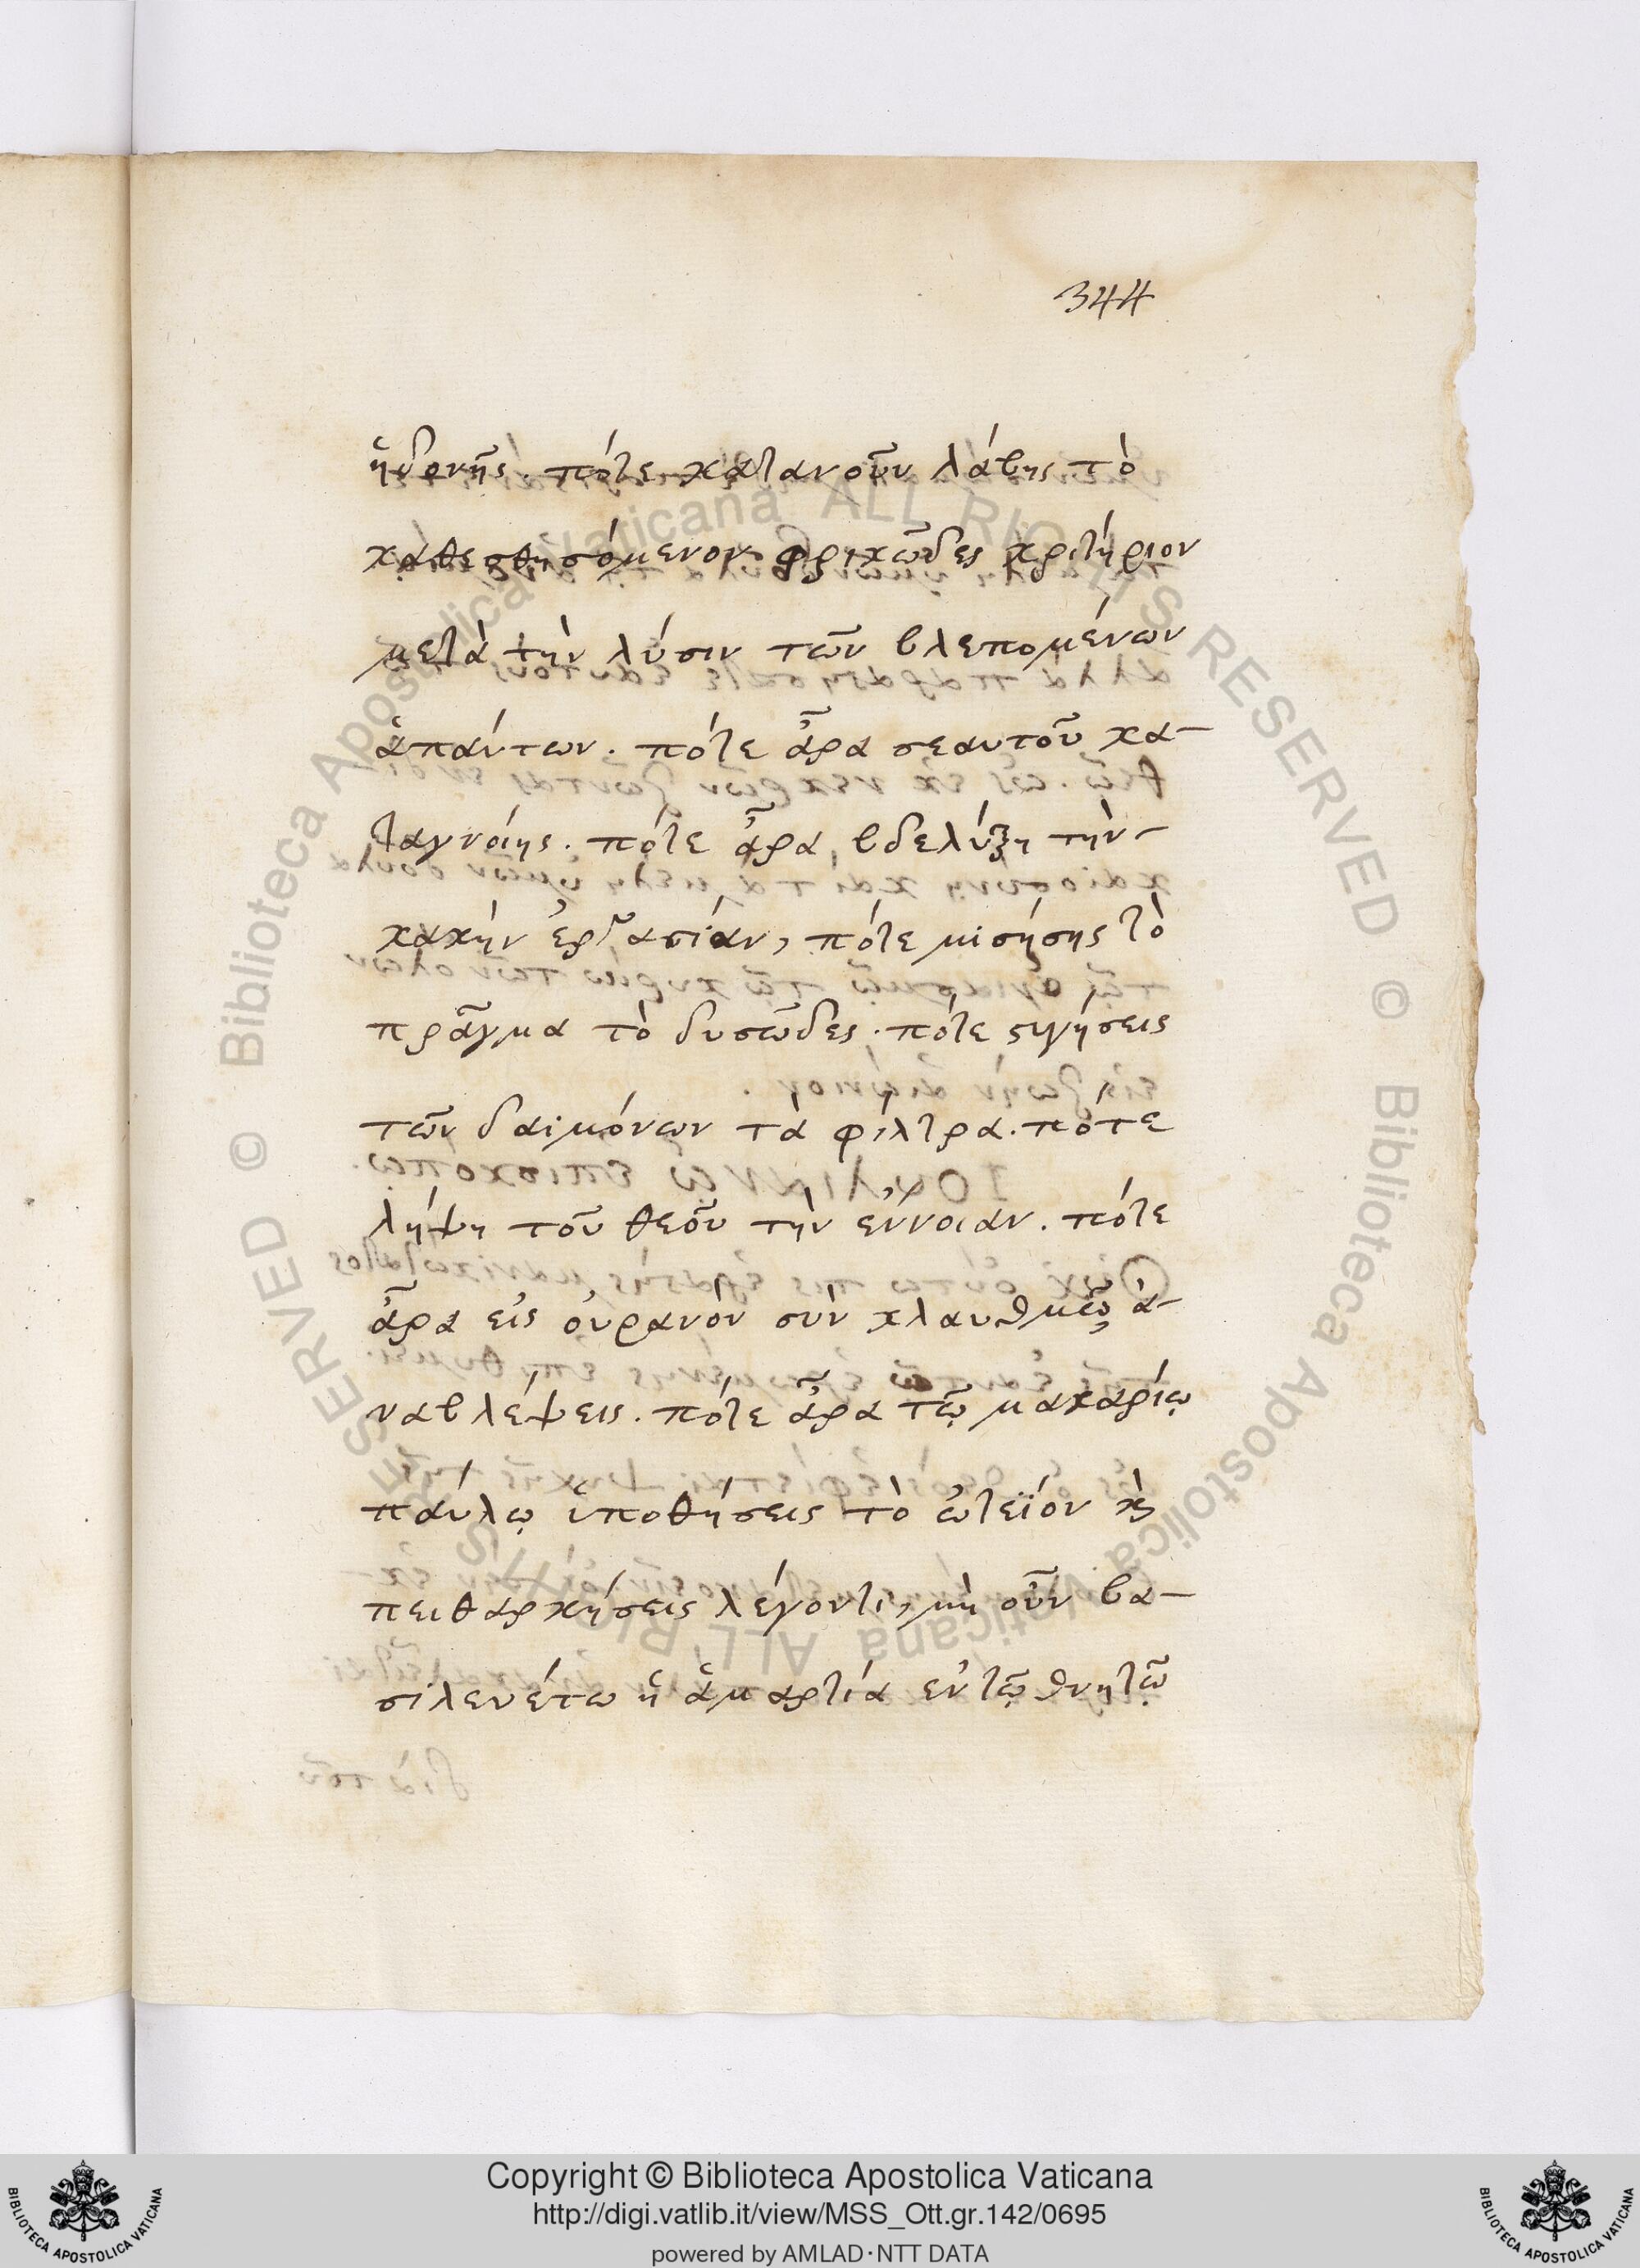 344
ἡδονῆς. πότε κατανοῦν λάβης τὸ
καθεσθησόμενον φρικῶδες κριτήριον
μετὰ τὴν λύσιν τῶν βλεπομένων
ἁπάντων. πότε ἆρα σεαυτοῦ κα-
ταγνοίης. πότε ἆρα βδελύξη τὴν-
κακὴν ἐργασίαν, πότε μισήσης τὸ
πρᾶγμα τὸ δυσῶδες. πότε σιγήσεις
τῶν δαιμόνων τὰ φίλτρα. πότε
λήψη τοῦ θεοῦ τὴν ἔννοιαν. πότε
ἆρα εἰς οὐρανὸν σὺν κλαυθμῷ ἀ-
ναβλέψεις. πότε ἆρα τῷ μακαρίῳ
παύλῳ ὑποθήσεις τὸ ὠτεῖον κὶ
πειθαρχήσεις λέγοντι, μὴ οὖν βα-
σιλευέτω ἡ ἁμαρτία ἐν τῷ θνητῷ
Copyright © Biblioteca Apostolica Vaticana
http://digi.vatlib.it/view/MSS_Ott.gr.142/0695
powered by AMLAD·NTT DATA
BIBLIOTECA APOSTOLICA VATICANA
BIBLIOTECA APOSTOLICA VATICANA
© Biblioteca Apostolica Vaticana ALL RIGHTS RESERVED
© Biblioteca Apostolica Vaticana ALL RIGHTS RESERVED